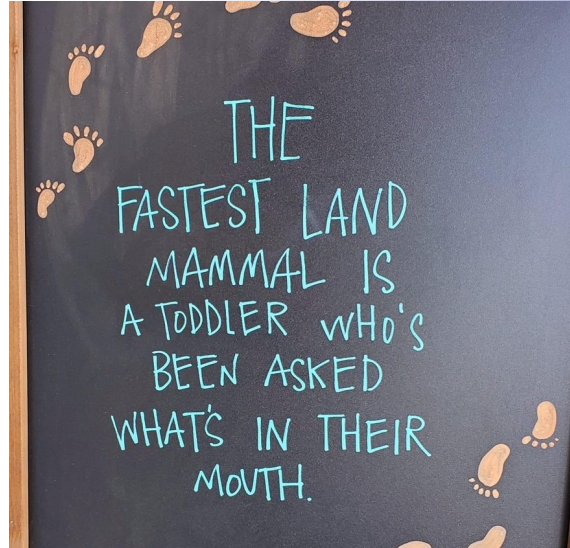 THE
FASTEST LAND
MAMMAL IS
A TODDLER WHO'S
BEEN ASKED
WHAT'S IN THEIR
MOUTH.